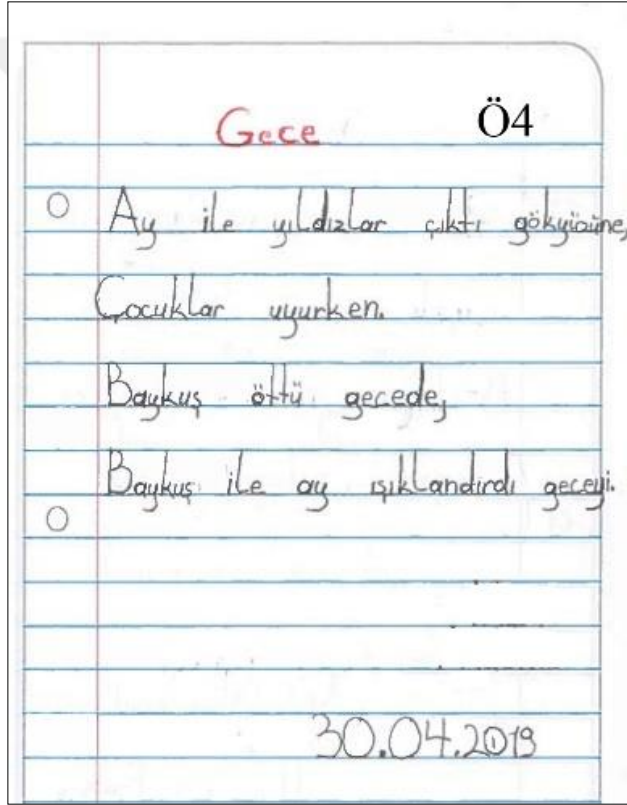 Gece Ö4
Ay ile yıldızlar çıktı gökyüzüne,
Çocuklar uyurken.
Baykuş öttü gecede,
Baykuş ile ay ışıklandırdı geceyi.
30.04.2019